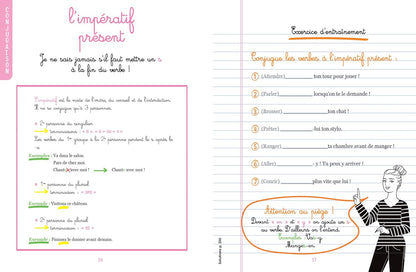 CONJUGAISON
l'impératif
présent
Je ne sais jamais s'il faut mettre un s
à la fin du verbe !
L'impératif est le mode de l'ordre, du conseil et de l'interdiction.
Il ne se conjugue qu'à 3 personnes.
2e personne du singulier
terminaisons :
Les verbes du 1er groupe à la 2e personne perdent le s après le
Exemples : Va dans le salon.
Pars de chez moi.
Chante avec nous !
1re personne du pluriel
terminaison : - ons
Exemple : Visitons ce château.
2e personne du pluriel
terminaison : - ez
Exemple : Prenez le dossier avant demain.
Exercice d'entraînement
Conjugue les verbes à l'impératif présent :
1 (Attendre) ton tour pour jouer !
2 (Parler) lorsqu'on te le demande !
3 (Brosser) ton chat !
4 (Prêter) -lui ton stylo.
5 (Ranger) ta chambre avant de manger !
6 (Aller) - y ! Tu peux y arriver !
7 (Courir) plus vite que lui !
Attention au piège !
Devant « en » et « y » on ajoute un s
au verbe. D'ailleurs on l'entend.
Exemples : Vas-y
Manges-en
37